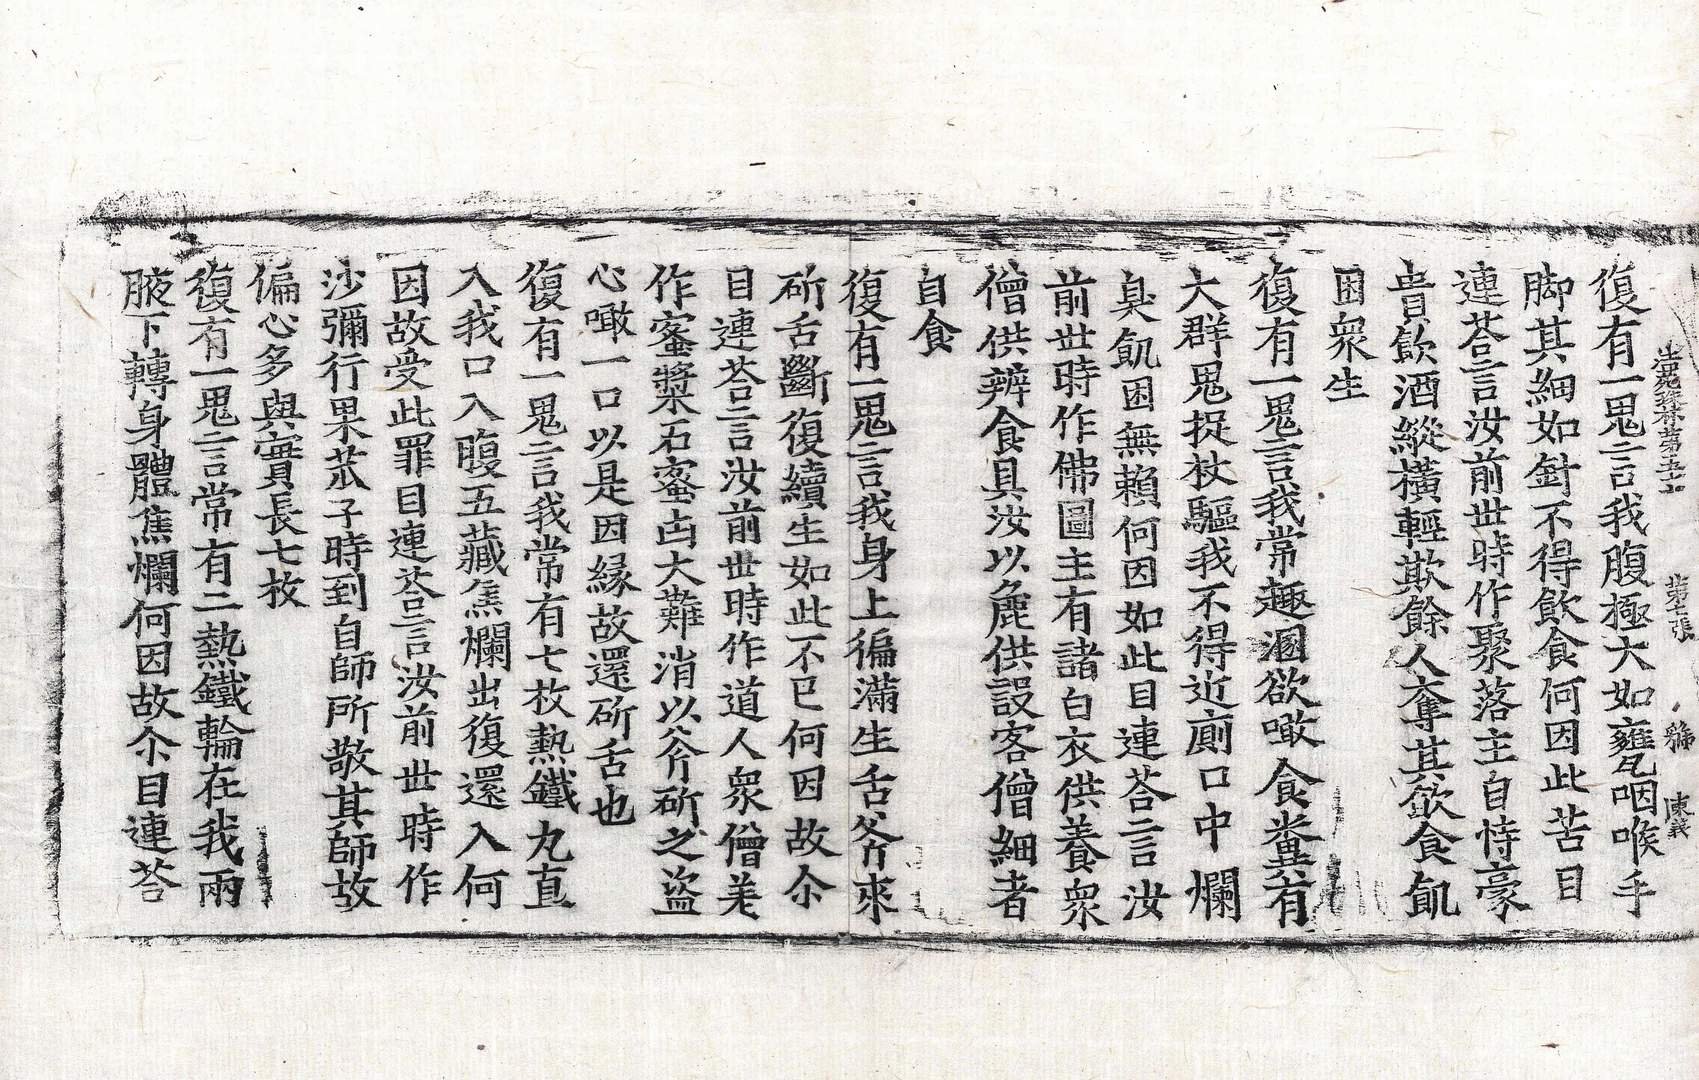 法苑珠林第五十 第七張 號 陳義
復有一鬼言我腹極大如甕咽喉手
脚其細如針不得飲食何因此苦目
連荅言汝前世時作聚落主自恃豪
貴飲酒縱橫輕欺餘人奪其飲食飢
困衆生
復有一鬼言我常趣溷欲噉食糞有
大群鬼捉杖驅我不得近廁口中爛
臭飢困無賴何因如此目連荅言汝
前世時作佛圖主有諸白衣供養衆
僧供辨食具汝以麁供設客僧細者
自食
復有一鬼言我身上徧滿生舌斧來
斫舌斷復續生如此不已何因故尒
目連荅言汝前世時作道人衆僧差
作蜜漿石蜜凷大難消以斧斫之盗
心噉一口以是因緣故還斫舌也
復有一鬼言我常有七枚熱鐵丸直
入我口入腹五藏焦爛出復還入何
因故受此罪目連荅言汝前世時作
沙彌行果苽子時到自師所敬其師故
偏心多與實長七枚
復有一鬼言常有二熱鐵輪在我兩
腋下轉身體焦爛何因故尒目連荅